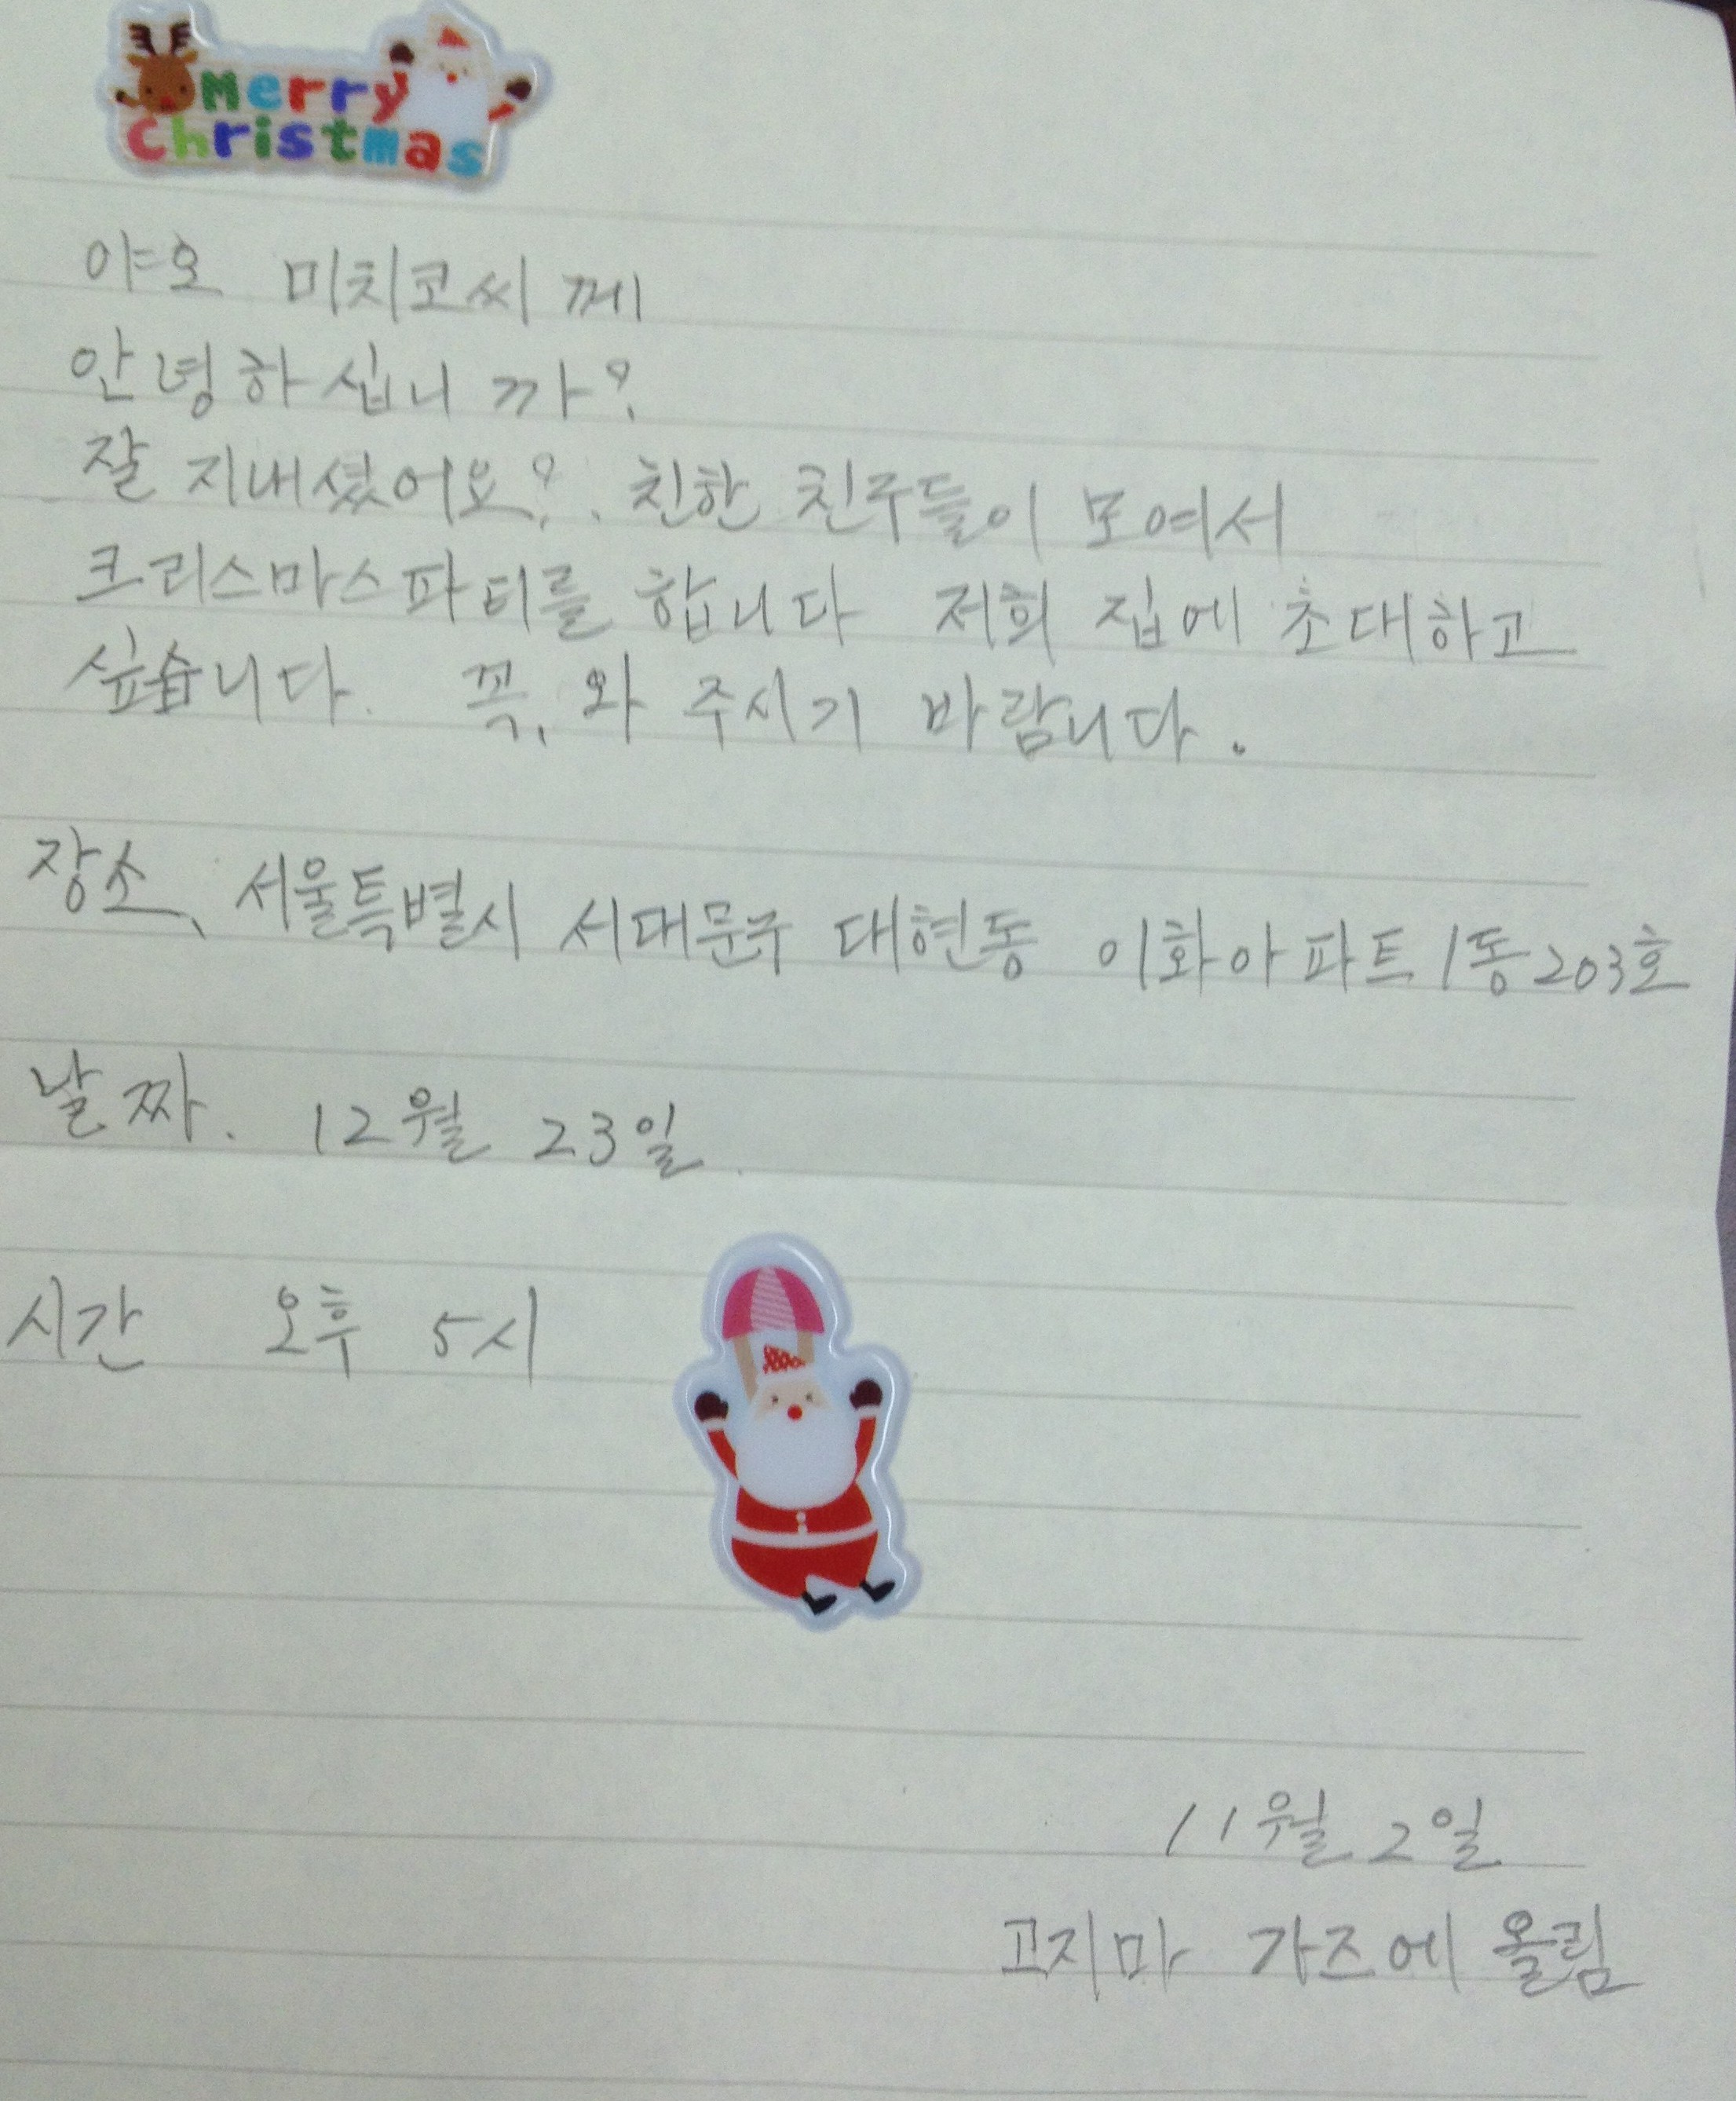 Merry
Christmas
야오 미치코씨 께
안녕하십니까?
잘 지내셨어요? 친한 친구들이 모여서
크리스마스파티를 합니다 저희 집에 초대하고
싶습니다. 꼭, 와 주시기 바람니다.
장소、서울특별시 서대문구 대현동 이화아파트 1동 203호
날짜. 12월 23일.
시간 오후 5시
11월 2일
고지마 가즈에 올림